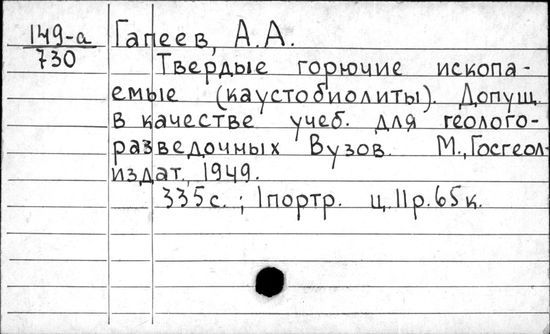 149-а Гапеев, А.А.
730
Твердые горючие ископа-
емые (каустобиолиты). Допущ.
в качестве учеб. для геолого-
разведочных Вузов. М., Госгеол-
издат, 1949.
335с.; 1портр. ц.11р.65к.